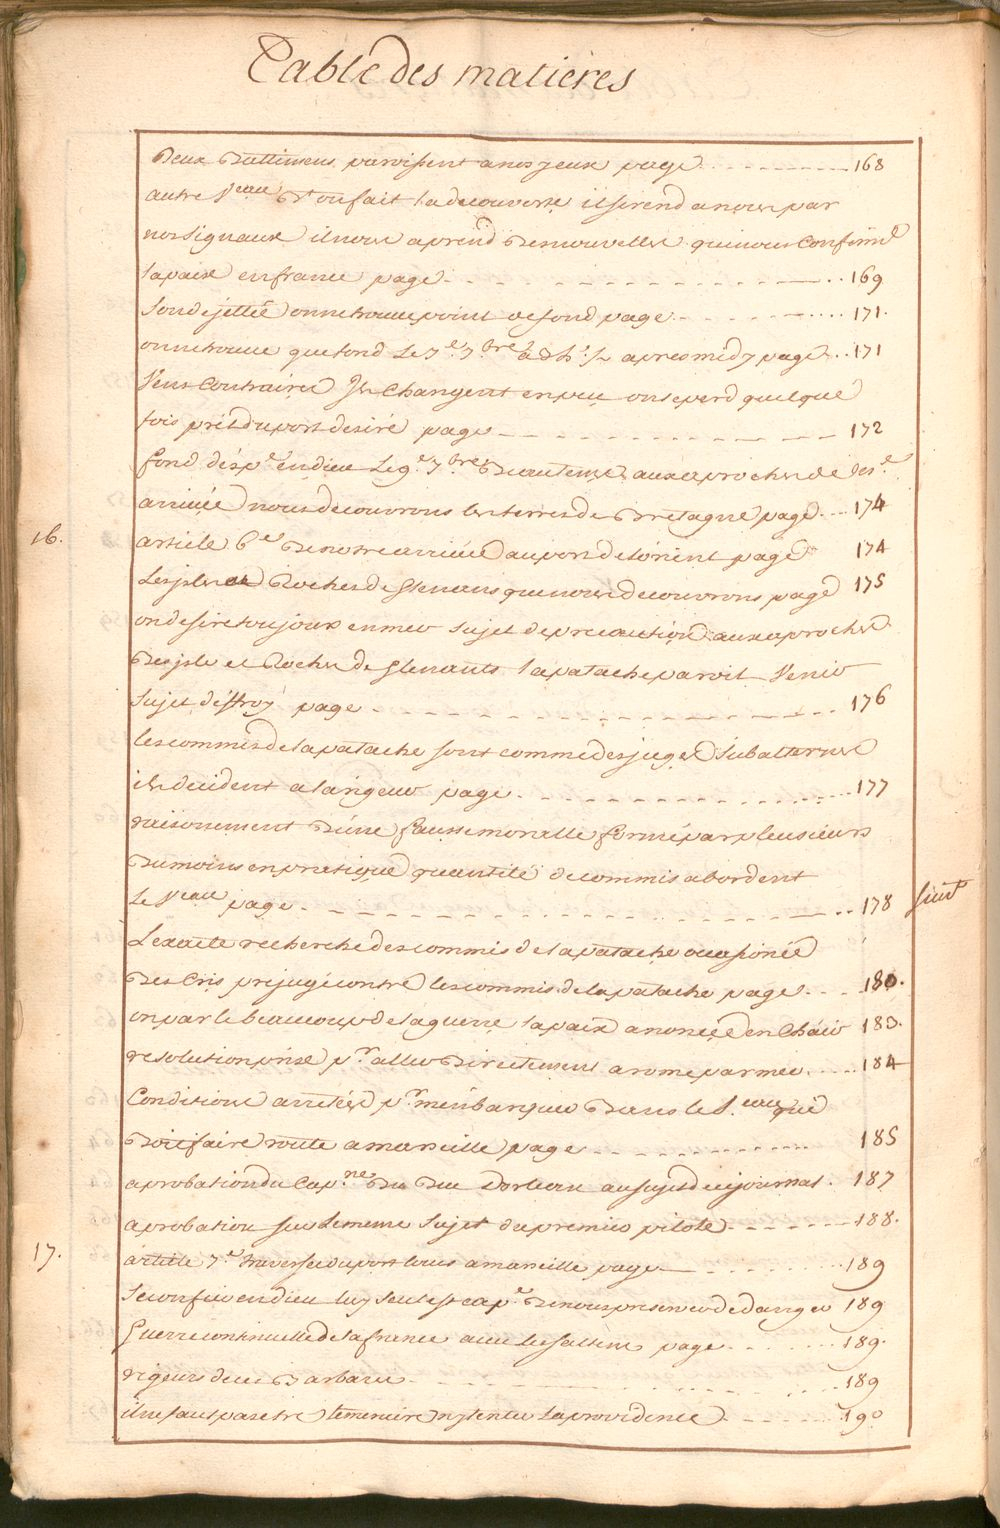 Table des matieres
Deux Battimens paroissent a nos yeux page 168
autre V.eau D'ou fait la decouverte il se rend a nous par
nos signaux il nous aprend Des nouvelles qui nous confirme
la paix en france page 169
Sonde jettée on ne trouve point de fond page 171.
on ne trouve que fond Le 7.e 7.bre a apres midy page 171
Vens Contraires Ils Changent en peu on se perd quelque
fois prêt du port desiré page 172
fond en dieu Le 9.e 7.bre aux aproches de
arrivée nous decouvrons les terres de Bretagne page 174
16. article 6.e De notre arrivée au port de lorient page 174
Les jsles et Roches de Glenans que nous decouvrons page 175
on desire toujours en mer sujet de precaution aux aproches
Des jsle et Roches de Glenants la patache paroit Venir
sujet d'effroy page 176
les commis de la patache sont comme des juges subalternes
ils decident a la rigeur page 177
raisonement D'une fausse moralle formé par pleusieurs
Du moins en pratique quantité de commis abordent
Le V.eau page 178
L'exacte recherche des commis de la patache occasionée
Des Cris prejugé contre les commis de la patache page 180.
on parle beaucoup de la guerre la paix anoncée en Chair 183.
resolution prise p.r aller Directement a rome par mer 184
Conditions arretées p.r m'enbarquer Dans le V.eau qui
Doit faire route a marseille page 185
aprobation du Cap.ne Du Duc Dorleans au sujet de ce journal. 187
aprobation sur le meme sujet du premier pilote 188.
17. article 7.e traversée du port louis a marseille page 189
Se confier en dieu luy seul est cap.e De nous preserver de danger 189
Guerre continuelle de la france avec les saltins page 189.
rigeurs de ces Barbares 189
il ne faut pas etre temeraire ny tenter la providence 190